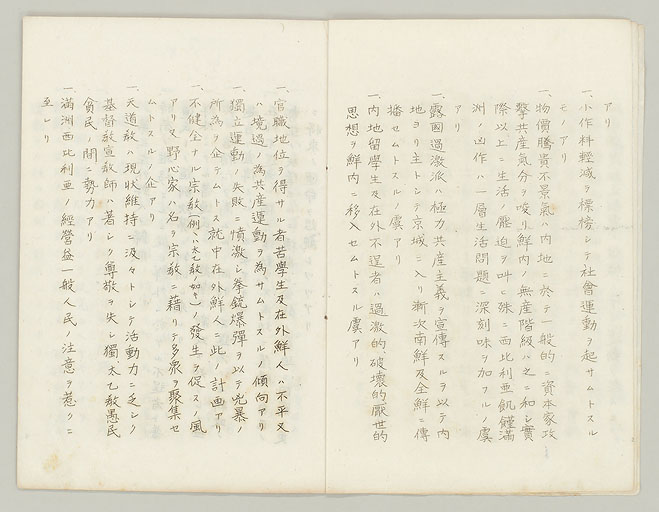 アリ
一、小作料軽減ヲ標榜シテ社會運動ヲ起サムトスル
モノアリ
一、物價騰貴不景氣ハ内地ニ於テ一般的ニ資本家攻
撃共産氣分ヲ唆リ鮮内ノ無産階級ハ之ニ和シ實
際以上ニ生活ノ壓迫ヲ叫ヒ殊ニ西比利亜飢饉満
洲ノ凶作ハ一層生活問題ニ深刻味ヲ加フルノ虞
アリ
一、露國過激派ハ極力共産主義ヲ宣傳スルヲ以テ内
地ヨリ主トシテ京城ニ入リ漸次南鮮及全鮮ニ傳
播セムトスルノ虞アリ
一、内地留學生及在外不逞者ハ過激的、破壊的、厭世的
思想ヲ鮮内ニ移入セムトスル虞アリ
一、官職地位ヲ得サル者苦學生及在外鮮人ハ不平又
ハ境遇ノ為共産運動ヲ為サムトスルノ傾向アリ
一、獨立運動ノ失敗ニ憤激シ拳銃爆彈ヲ以テ兇暴ノ
所為ヲ企テムトス就中在外鮮人ニ此ノ計画アリ
一、不健全ナル宗教(例ハ太乙教如キ)ノ發生ヲ促スノ風
アリ又野心家ハ名ヲ宗教ニ藉リテ多衆ヲ聚集セ
ムトスルノ企アリ
一、天道教ハ現状維持ニ汲々トシテ活動力ニ乏シク
基督教宣教師ハ著シク尊敬ヲ失シ獨太乙教愚民
貧民ノ間ニ勢力アリ
一、満洲西比利亜ノ經營益一般人民ノ注意ヲ惹クニ
至レリ